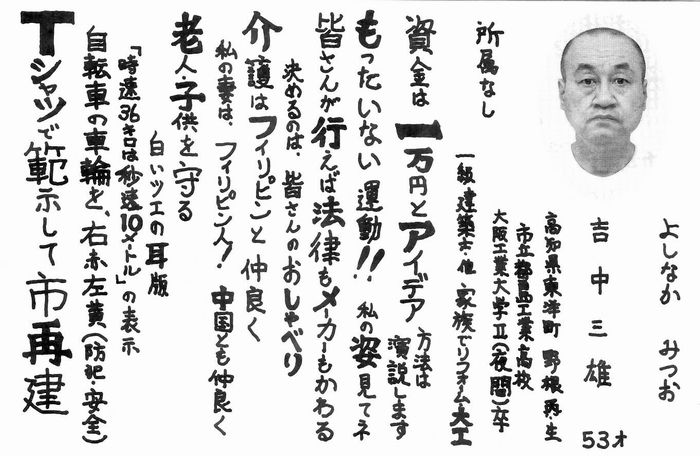 よしなか　みつお
吉中三雄　53才
高知県東洋町　野根　再・生
市立都島工業高校
大阪工業大学Ⅱ(夜間)卒
一級建築士・他　家族でリフォーム・大工
所属なし
資金は一万円とアイデア　方法は演説します
もったいない運動!!　私の姿見てネ
皆さんが行えば法律もメーカーもかわる
決めるのは、皆さんのおしゃべり
介護はフィリピンと仲良く
私の妻は、フィリピン人!　中国とも仲良く
老人・子供を守る
白いツエの耳版
「時速36キロは秒速10メートル」の表示
自転車の車輪を、右赤左黄(防犯・安全)
Tシャツで範示して市再建